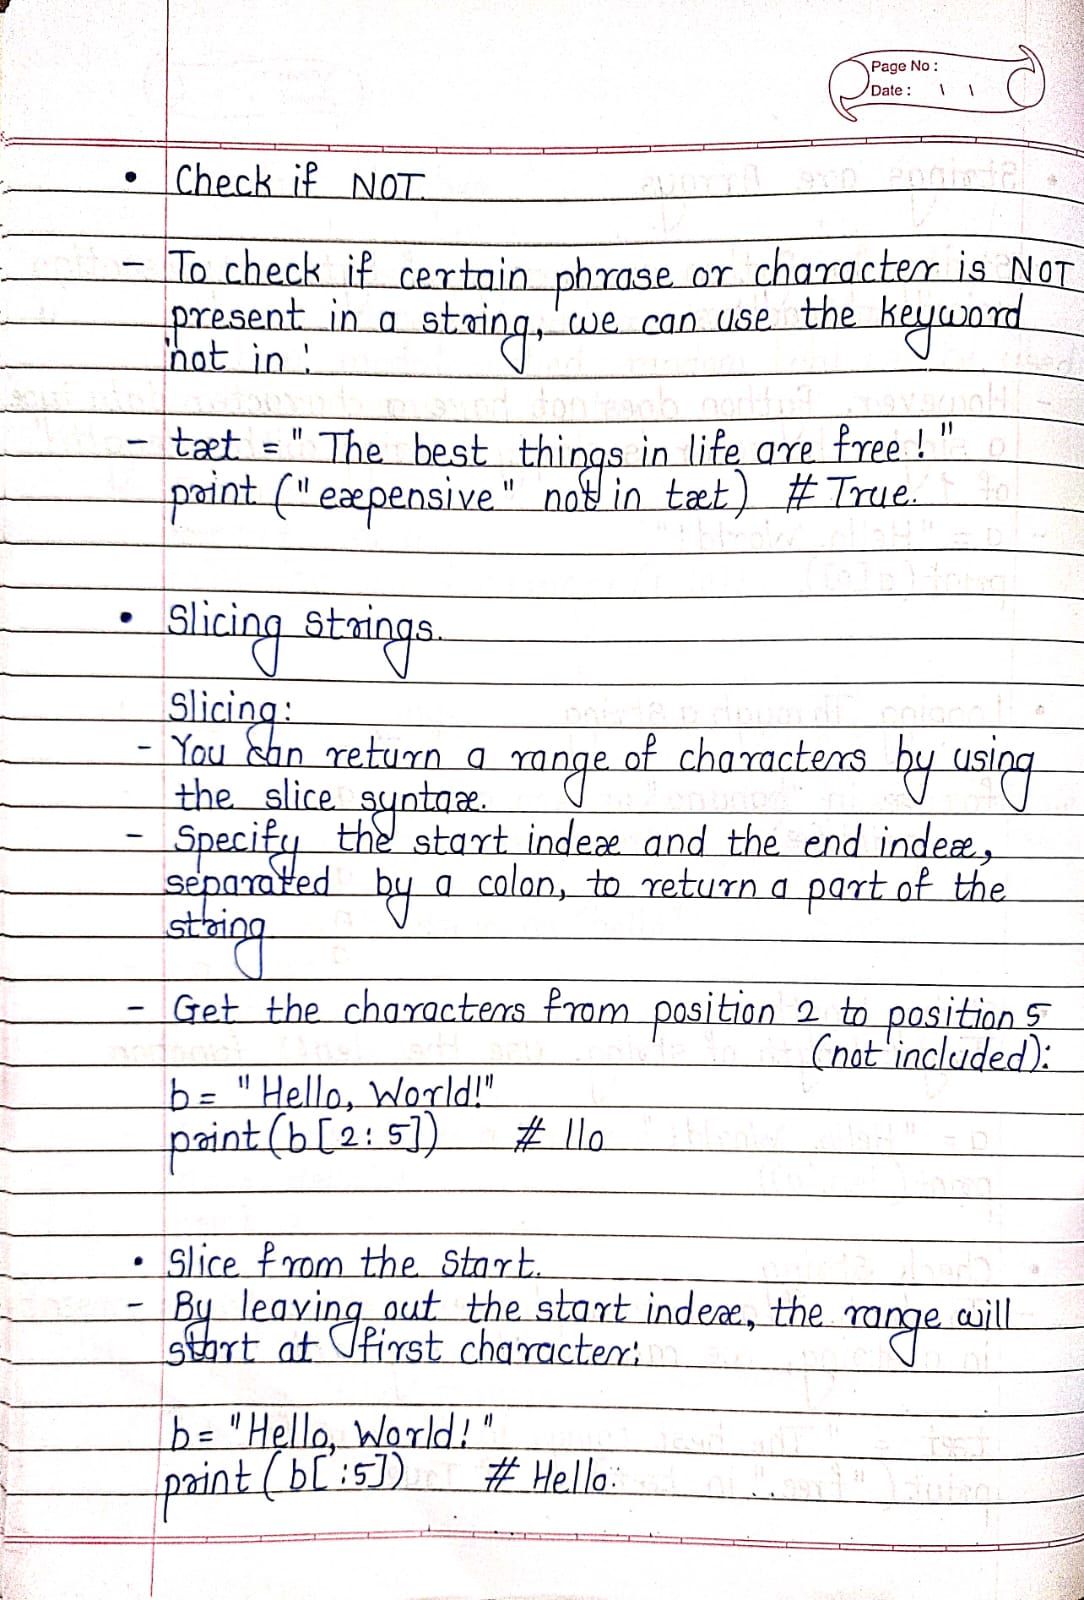 Page No :
Date : \ \
• Check if NOT.
- To check if certain phrase or character is NOT
present in a string, we can use the keyword
not in :
- txt = "The best things in life are free!"
print ("expensive" not in txt) # True.
• Slicing Strings.
Slicing:
- You can return a range of characters by using
the slice syntax.
- Specify the start index and the end index,
separated by a colon, to return a part of the
string
- Get the characters from position 2 to position 5
(not included):
b = "Hello, World!"
print (b[2:5]) # llo
• Slice from the Start.
- By leaving out the start index, the range will
start at first character:
b = "Hello, World!"
print (b[:5]) # Hello.